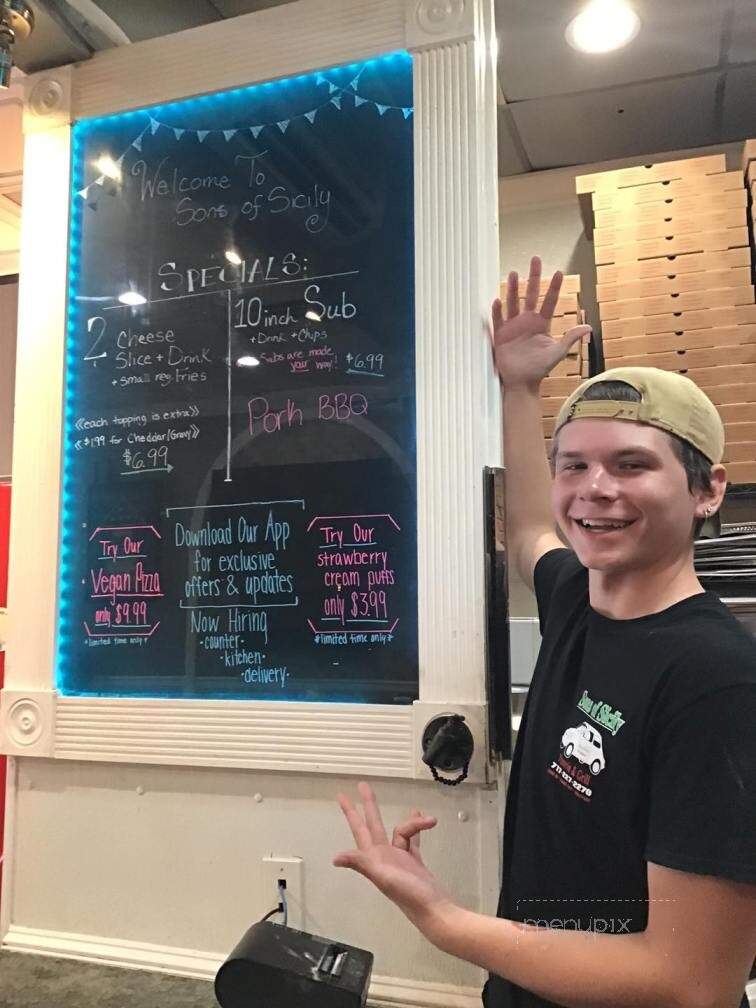 Welcome To
Sons of Sicily
SPECIALS:
2 Cheese
Slice + Drink
+ small reg. Fries
《each topping is extra》
《$1.99 for Cheddar/Gravy》
$6.99
10 inch Sub
+ Drink + Chips
Subs are made
your way!
$6.99
Pork BBQ
Try Our
Vegan Pizza
only $9.99
*limited time only*
Download Our App
for exclusive
offers & updates
Now Hiring
•counter•
•kitchen•
•delivery•
Try Our
strawberry
cream puffs
only $3.99
*limited time only*
Sons of Sicily
& Grill
menupix